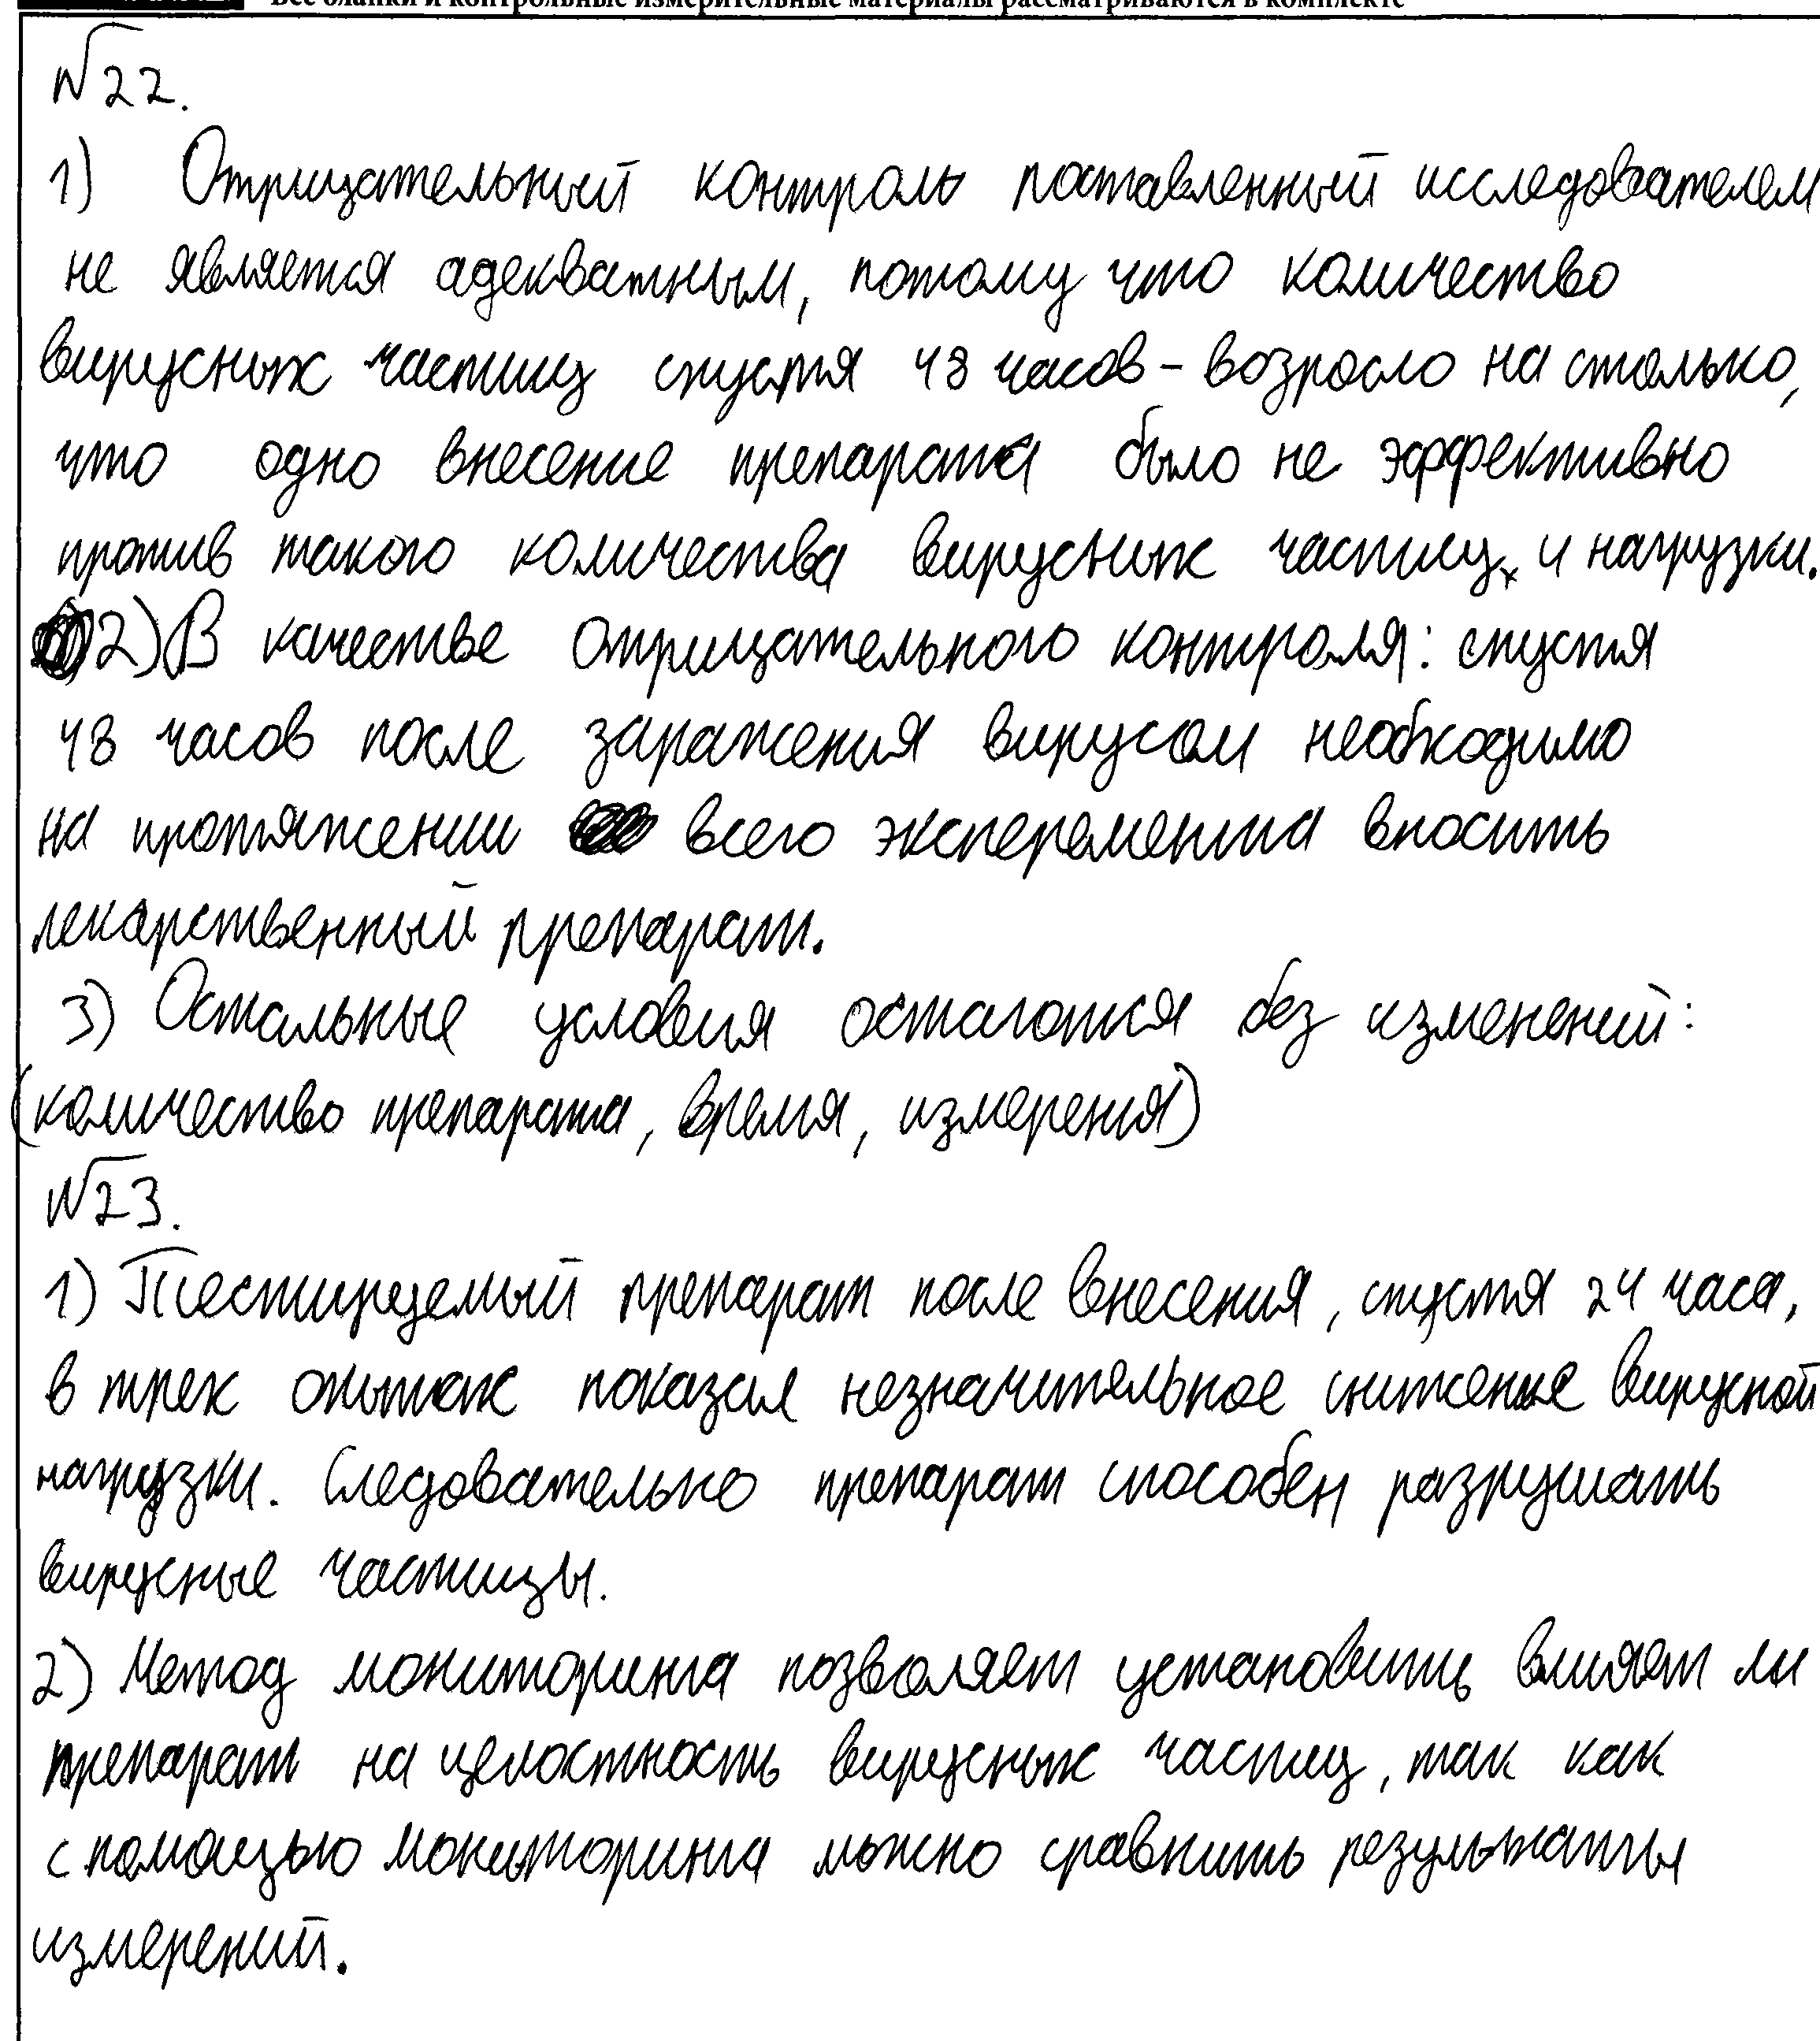 Все бланки и контрольные измерительные материалы рассматриваются в комплекте
№22.
1) Отрицательный контроль поставленный исследователем
не является адекватным, потому что количество
вирусных частиц спустя 48 часов - возросло на столько,
что одно внесение препарата было не эффективно
против такого количества вирусных частиц, и нагрузки.
2) В качестве отрицательного контроля: спустя
48 часов после заражения вирусом необходимо
на протяжении всего эксперемента вносить
лекарственный препарат.
3) Остальные условия остаются без изменений:
(количество препарата, время, измерения)
№23.
1) Тестируемый препарат после внесения, спустя 24 часа,
в трех опытах показал незначительное снижение вирусной
нагрузки. Следовательно препарат способен разрушать
вирусные частицы.
2) Метод мониторинга позволяет установить влияет ли
препарат на целостность вирусных частиц, так как
с помощью мониторинга можно сравнить результаты
измерений.